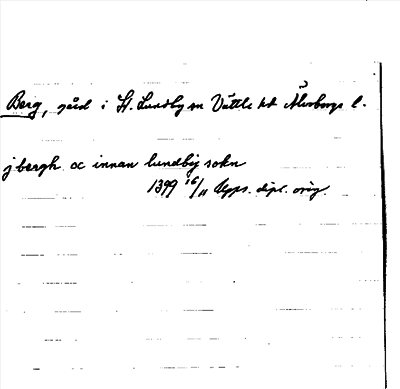 Berg, gård i St. Lundby sn Vättle hd Älvsborgs l.
j bergh oc innan lundby sokn
1399 16/11 Upps. dipl. orig.